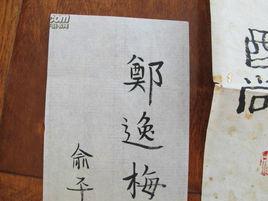 com
尚
鄭逸梅
俞平